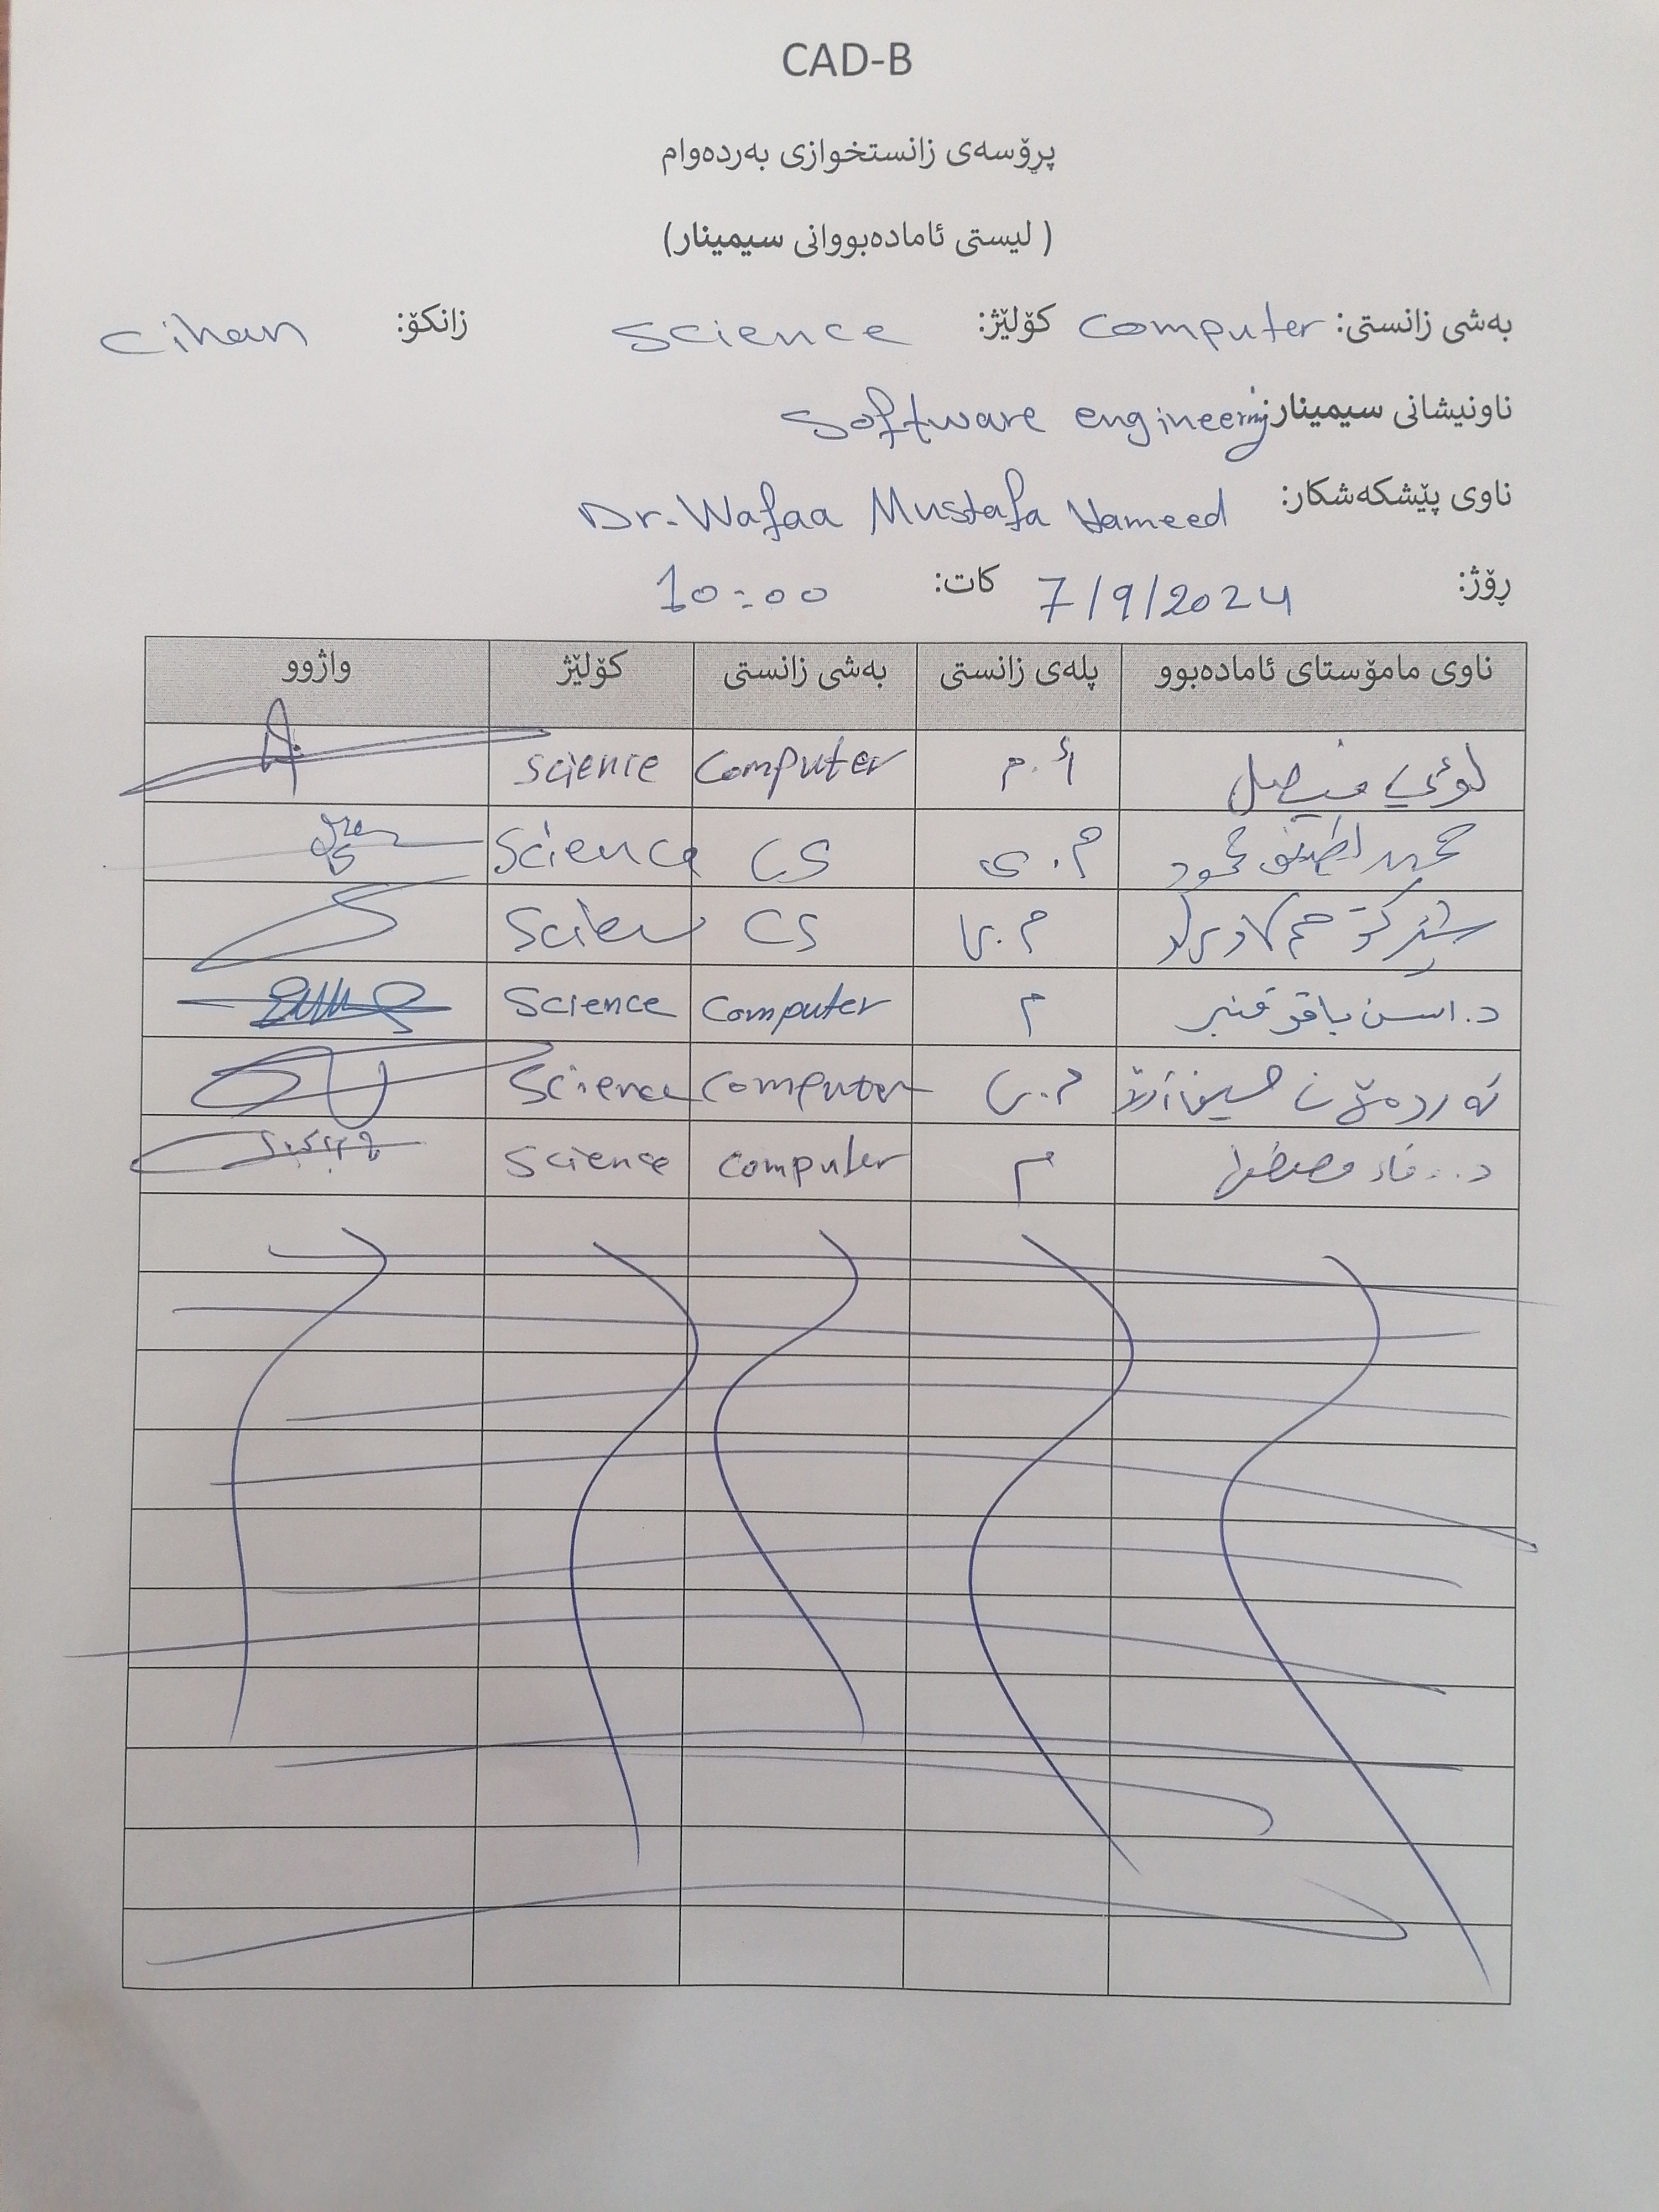 CAD-B
پڕۆسەی زانستخوازی بەردەوام
( لیستی ئامادەبووانی سیمینار)
بەشی زانستی: computer کۆلێژ: science زانکۆ: cihan
ناونیشانی سیمینار: Software engineering
ناوی پێشکەشکار: Dr. Wafaa Mustafa Hameed
ڕۆژ: 7/9/2024 کات: 10:00
ناوی مامۆستای ئامادەبوو پلەی زانستی بەشی زانستی کۆلێژ واژوو
لوئي فيصل أ.م computer science
محمد لطيف محمود م.ى CS Science
م.ى CS Scien
د. باقر قنبر م computer Science
حسين م.ى computer Science
د. وفاء مصطفى م computer science